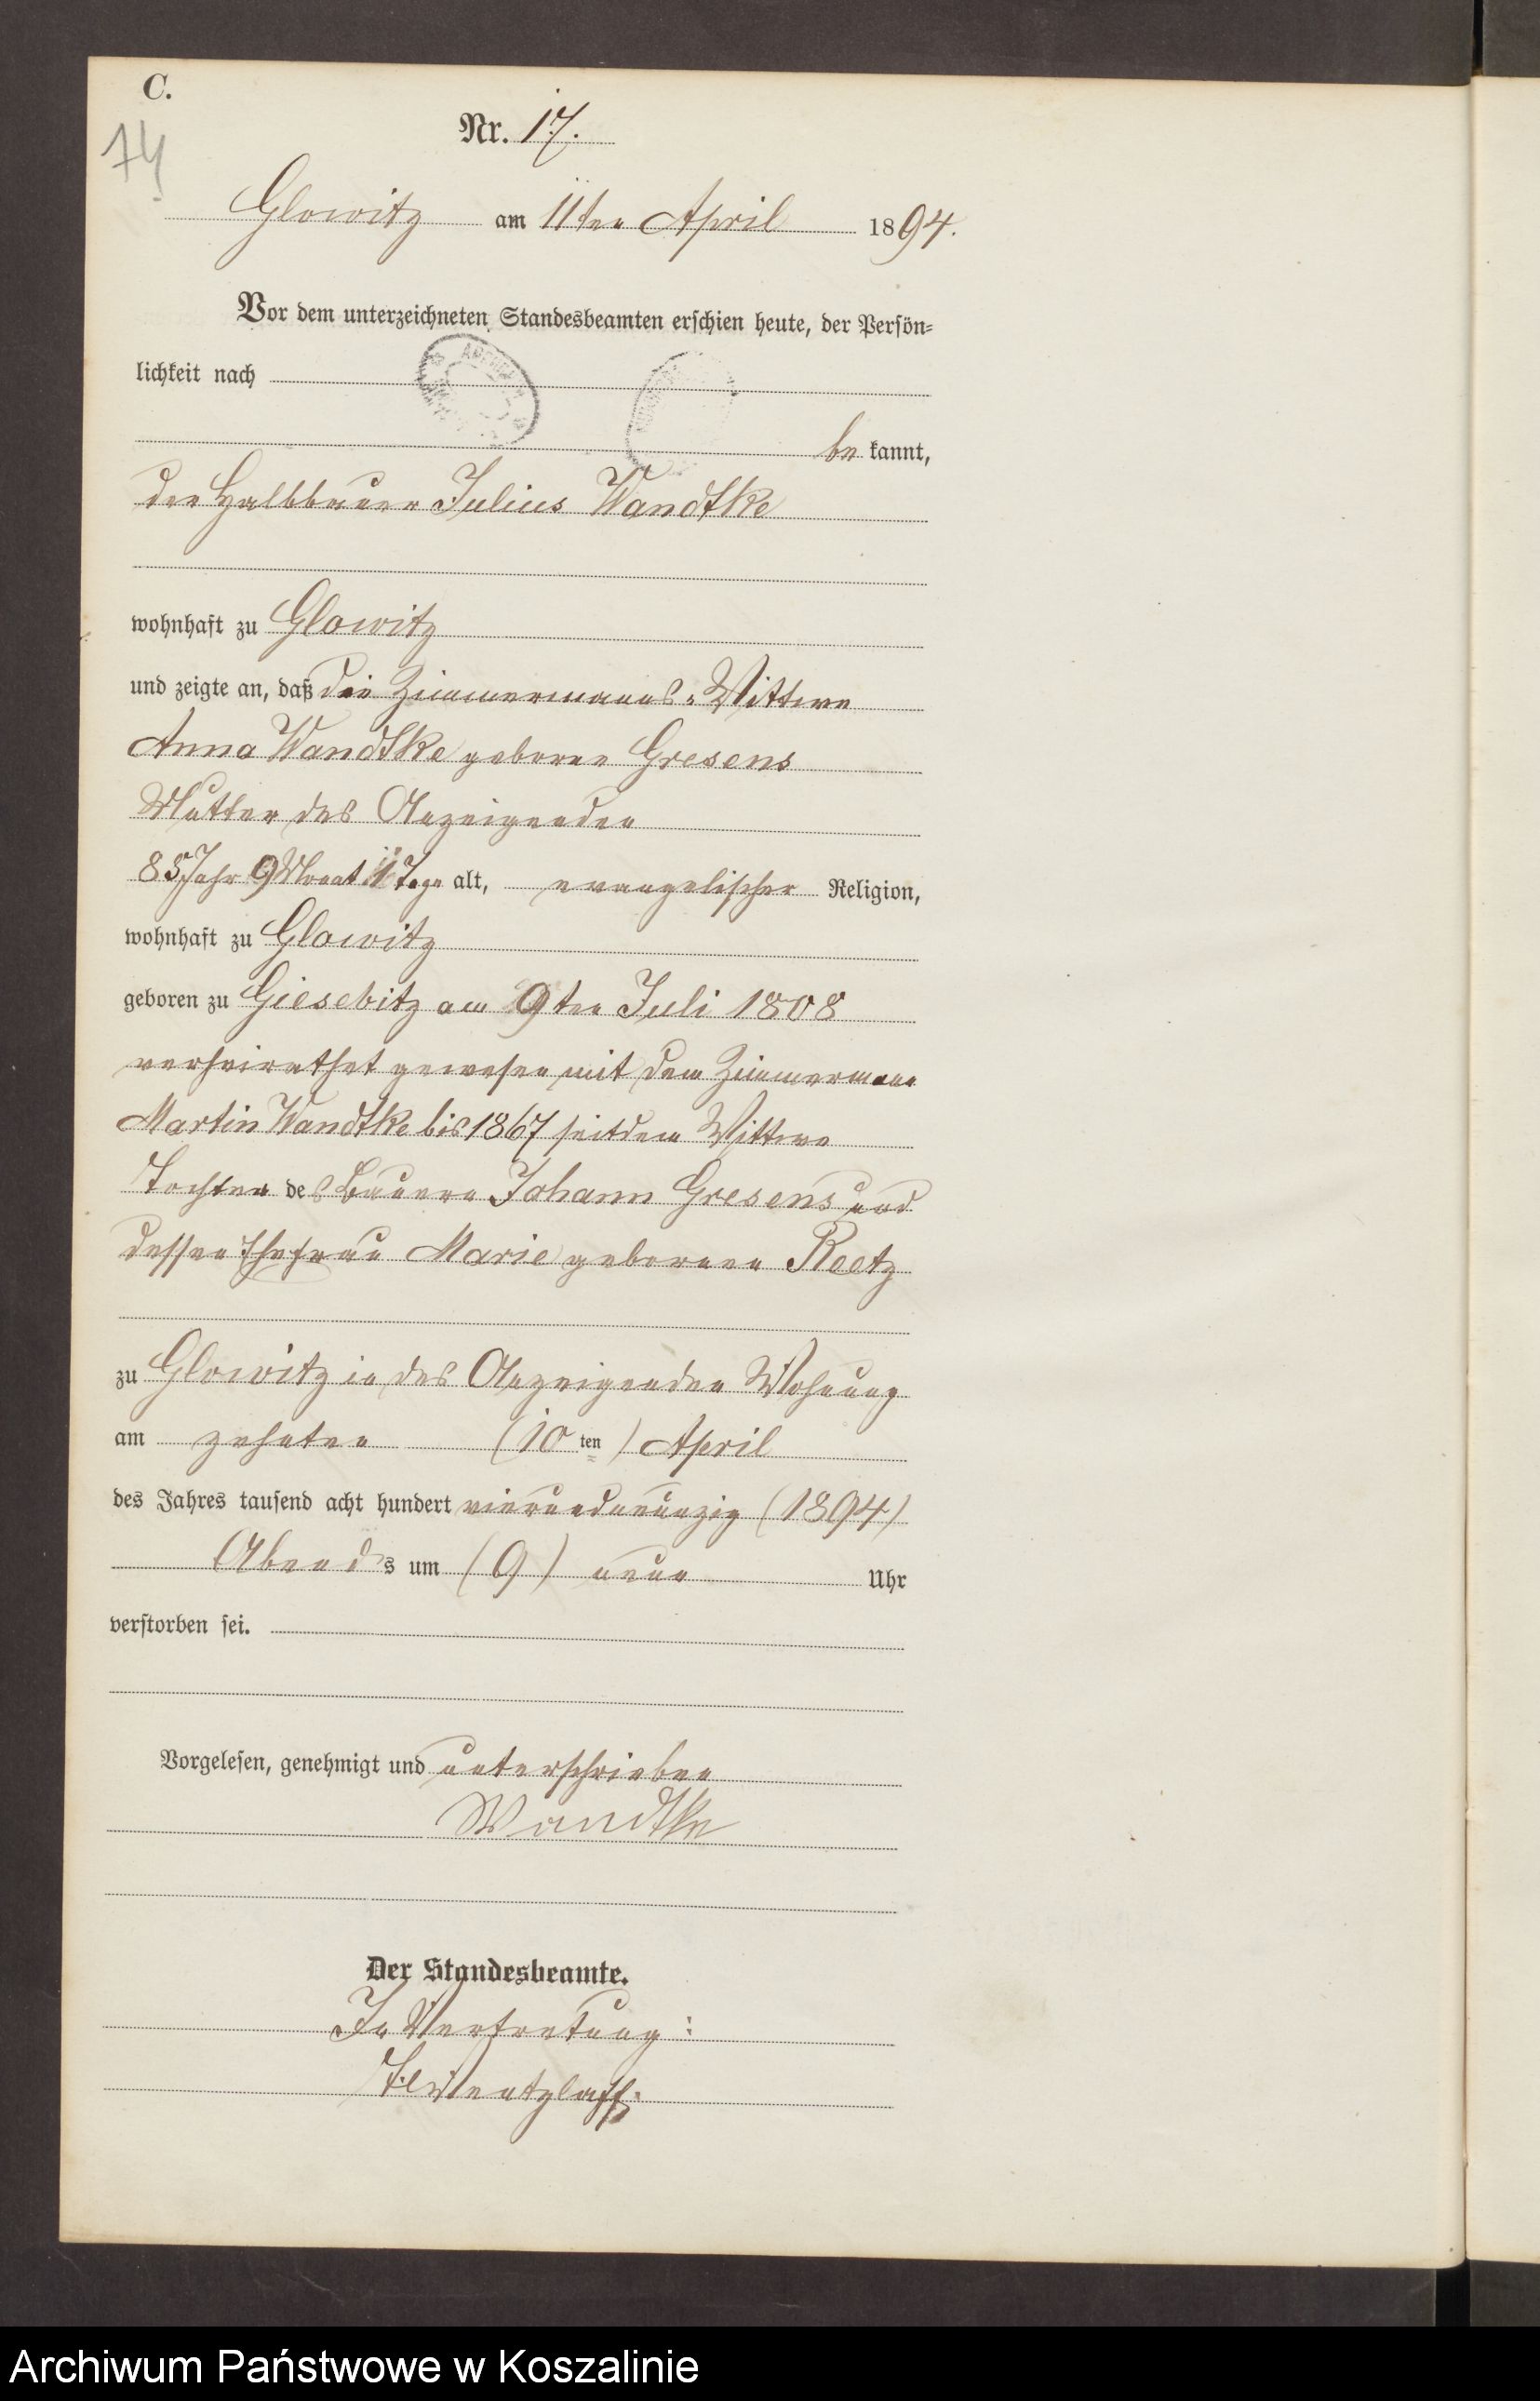 C.
74
Nr. 17.
Glowitz am 11ten April 1894.
Vor dem unterzeichneten Standesbeamten erschien heute, der Persön-
lichkeit nach
be kannt,
der Halbbauer Julius Wandtke
wohnhaft zu Glowitz
und zeigte an, daß die Zimmermanns-Wittwe
Anna Wandtke geborne Gresens
Mutter des Anzeigenden
85 Jahr 9 Monat 1 Tage alt, evangelischer Religion,
wohnhaft zu Glowitz
geboren zu Giesebitz am 9ten Juli 1808
verheirathet gewesen mit dem Zimmermann
Martin Wandtke bis 1867 seitdem Wittwe
Tochter des Bauern Johann Gresens und
dessen Ehefrau Marie gebornen Reetz
zu Glowitz in des Anzeigenden Wohnung
am zehnten (10 ten) April
des Jahres tausend acht hundert vierundneunzig (1894)
Abends um (9) neun Uhr
verstorben sei.
Vorgelesen, genehmigt und unterschrieben
Wandtke
Der Standesbeamte.
In Vertretung:
Wentzlaff.
Archiwum Państwowe w Koszalinie